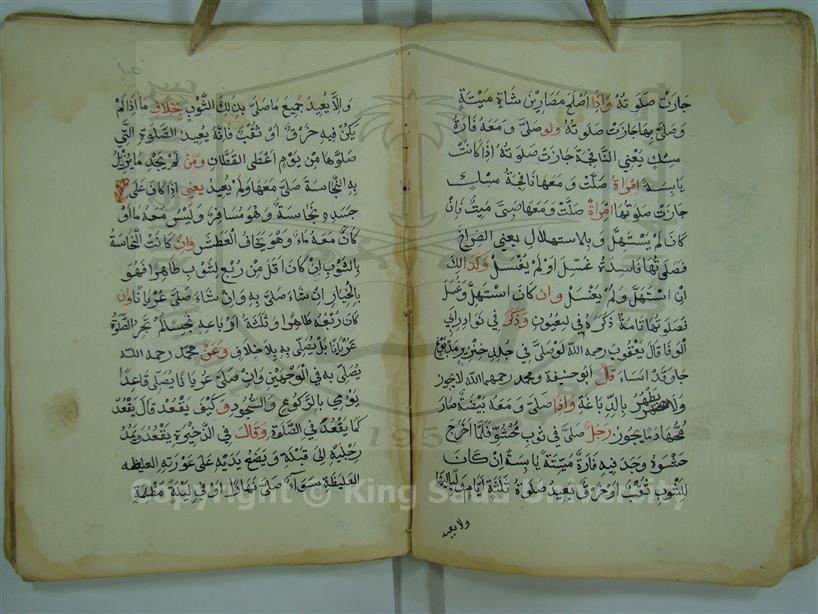 جازت صلوته واذا اصلح مصارين شاة ميتة
وصلى بها جازت صلوته ولو صلى ومعه فارة
مسك يعني النافجة جازت صلوته اذا كانت
يابسة امراة صلت ومعها نافجة مسك
جازت صلوتها امراة صلت ومعها صبى ميت فان
كان لم يستهل وبالاستهلال يعني الصراخ
فصلوتها فاسدة غسل او لم يغسل وكذالك
ان استهل ولم يغسل وان كان استهل وغسل
فصلوتها تامة ذكره في لعيون وذكر في نوادر ابي
الوفا قال يعقوب رحمه الله لو صلى في جلد خنزير مدبوغ
جاز وقد اساء قال ابو حنيفة ومحمد رحمهما الله لا يجوز
ولا يطهر بالدباغة واذا صلى ومعه بيضة صار
محها دما يجوز رجل صلى في ثوب محشو فلما اخرج
حشوه وجد فيه فارة ميتة يابسة ان كان
للثوب ثقب او خرق يعيد صلوة ثلثة ايام ولياليها
ولا يعيد
والا يعيد جميع ما صلى بذلك الثوب خلاف ما اذا لم
يكن فيه خرق او ثقب فانه يعيد الصلوة التي
صلوها من يوم اعطى القطان ومن لم يجد ما يزيل
به النجاسة صلى معها ولم يعيد يعني اذا كان على
جسده نجاسة وهو مسافر وليس معه ماء او
كان معه ماء وهو يخاف العطش وان كانت النجاسة
بالثوب ان كان اقل من ربع لثوب طاهرا فهو
بالخيار ان شاء صلى به وان شاء صلى عريانا وان
كان ربعه طاهرا او ثلثة ارباعه نجس لم تجز الصلوة
عريانا بل يصلى به بلا خلاف وعن محمد رحمه الله
يصلى به في الوجهين وان صلى عريانا يصلى قاعدا
يؤمي بالركوع والسجود وكيف يقعد قال يقعد
كما يقعد في الصلوة وقال في الذخيرة يقعد ويمد
رجليه الى قبلة ويضع يديه على عورته الغليظه
الغليظة سواء صلى نهارا او في ليلة مظلمة
Copyright © King Saud University
1957